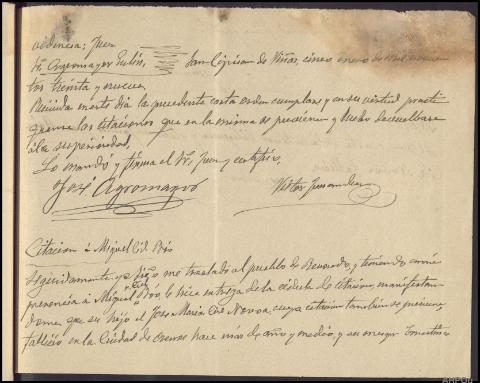 videncia: Juez
Sr. Agromayor Eulin, San Ciprian de Viñas, cinco Enero de mil novecien
tos treinta y nueve.
Recibida en este día la precedente carta orden cumplase y en su virtud practí
quense las citaciones que en la misma se previenen y hecho devuelvase
á la superioridad.
Lo mandó y firma el Sr. Juez y certifico,
José Agromayor
Citacion á Miguel Cid Bóo
Seguidamente yo me trasladé al pueblo de y teniendo á mi
presencia á Miguel Cid Bóo, le hice entrega de la cédula de citacion, manifestan
dome que su hijo el José Maria Cid Novoa, cuya citacion tambien se previene,
falleció en la Ciudad de Orense hace más de año y medio, y en
AHPOu